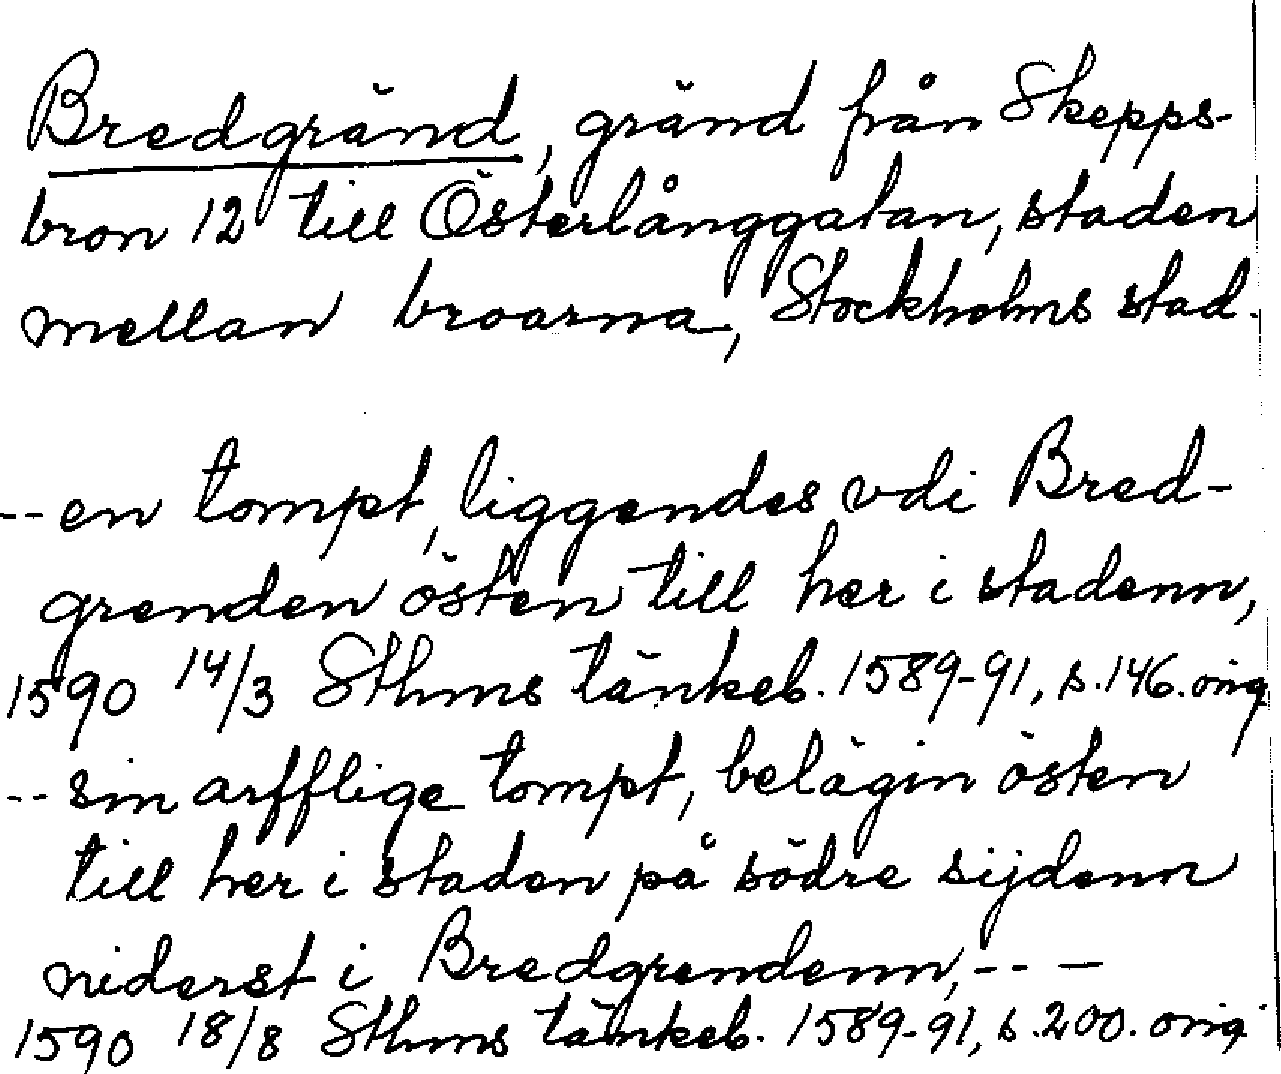 Bredgränd, gränd från Skepps-
bron 12 till Österlånggatan, staden
mellan broarna, Stockholms stad.
-- en tompt, liggendes vdi Bred-
grenden östen till her i stadenn,
1590 14/3 Sthms tänkeb. 1589-91, s. 146. orig
-- sin arfflige tompt, belägin östen
till her i staden på södre sijdenn
niderst i Bredgrendenn, -- —
1590 18/8 Sthms tänkeb. 1589-91, s. 200. orig